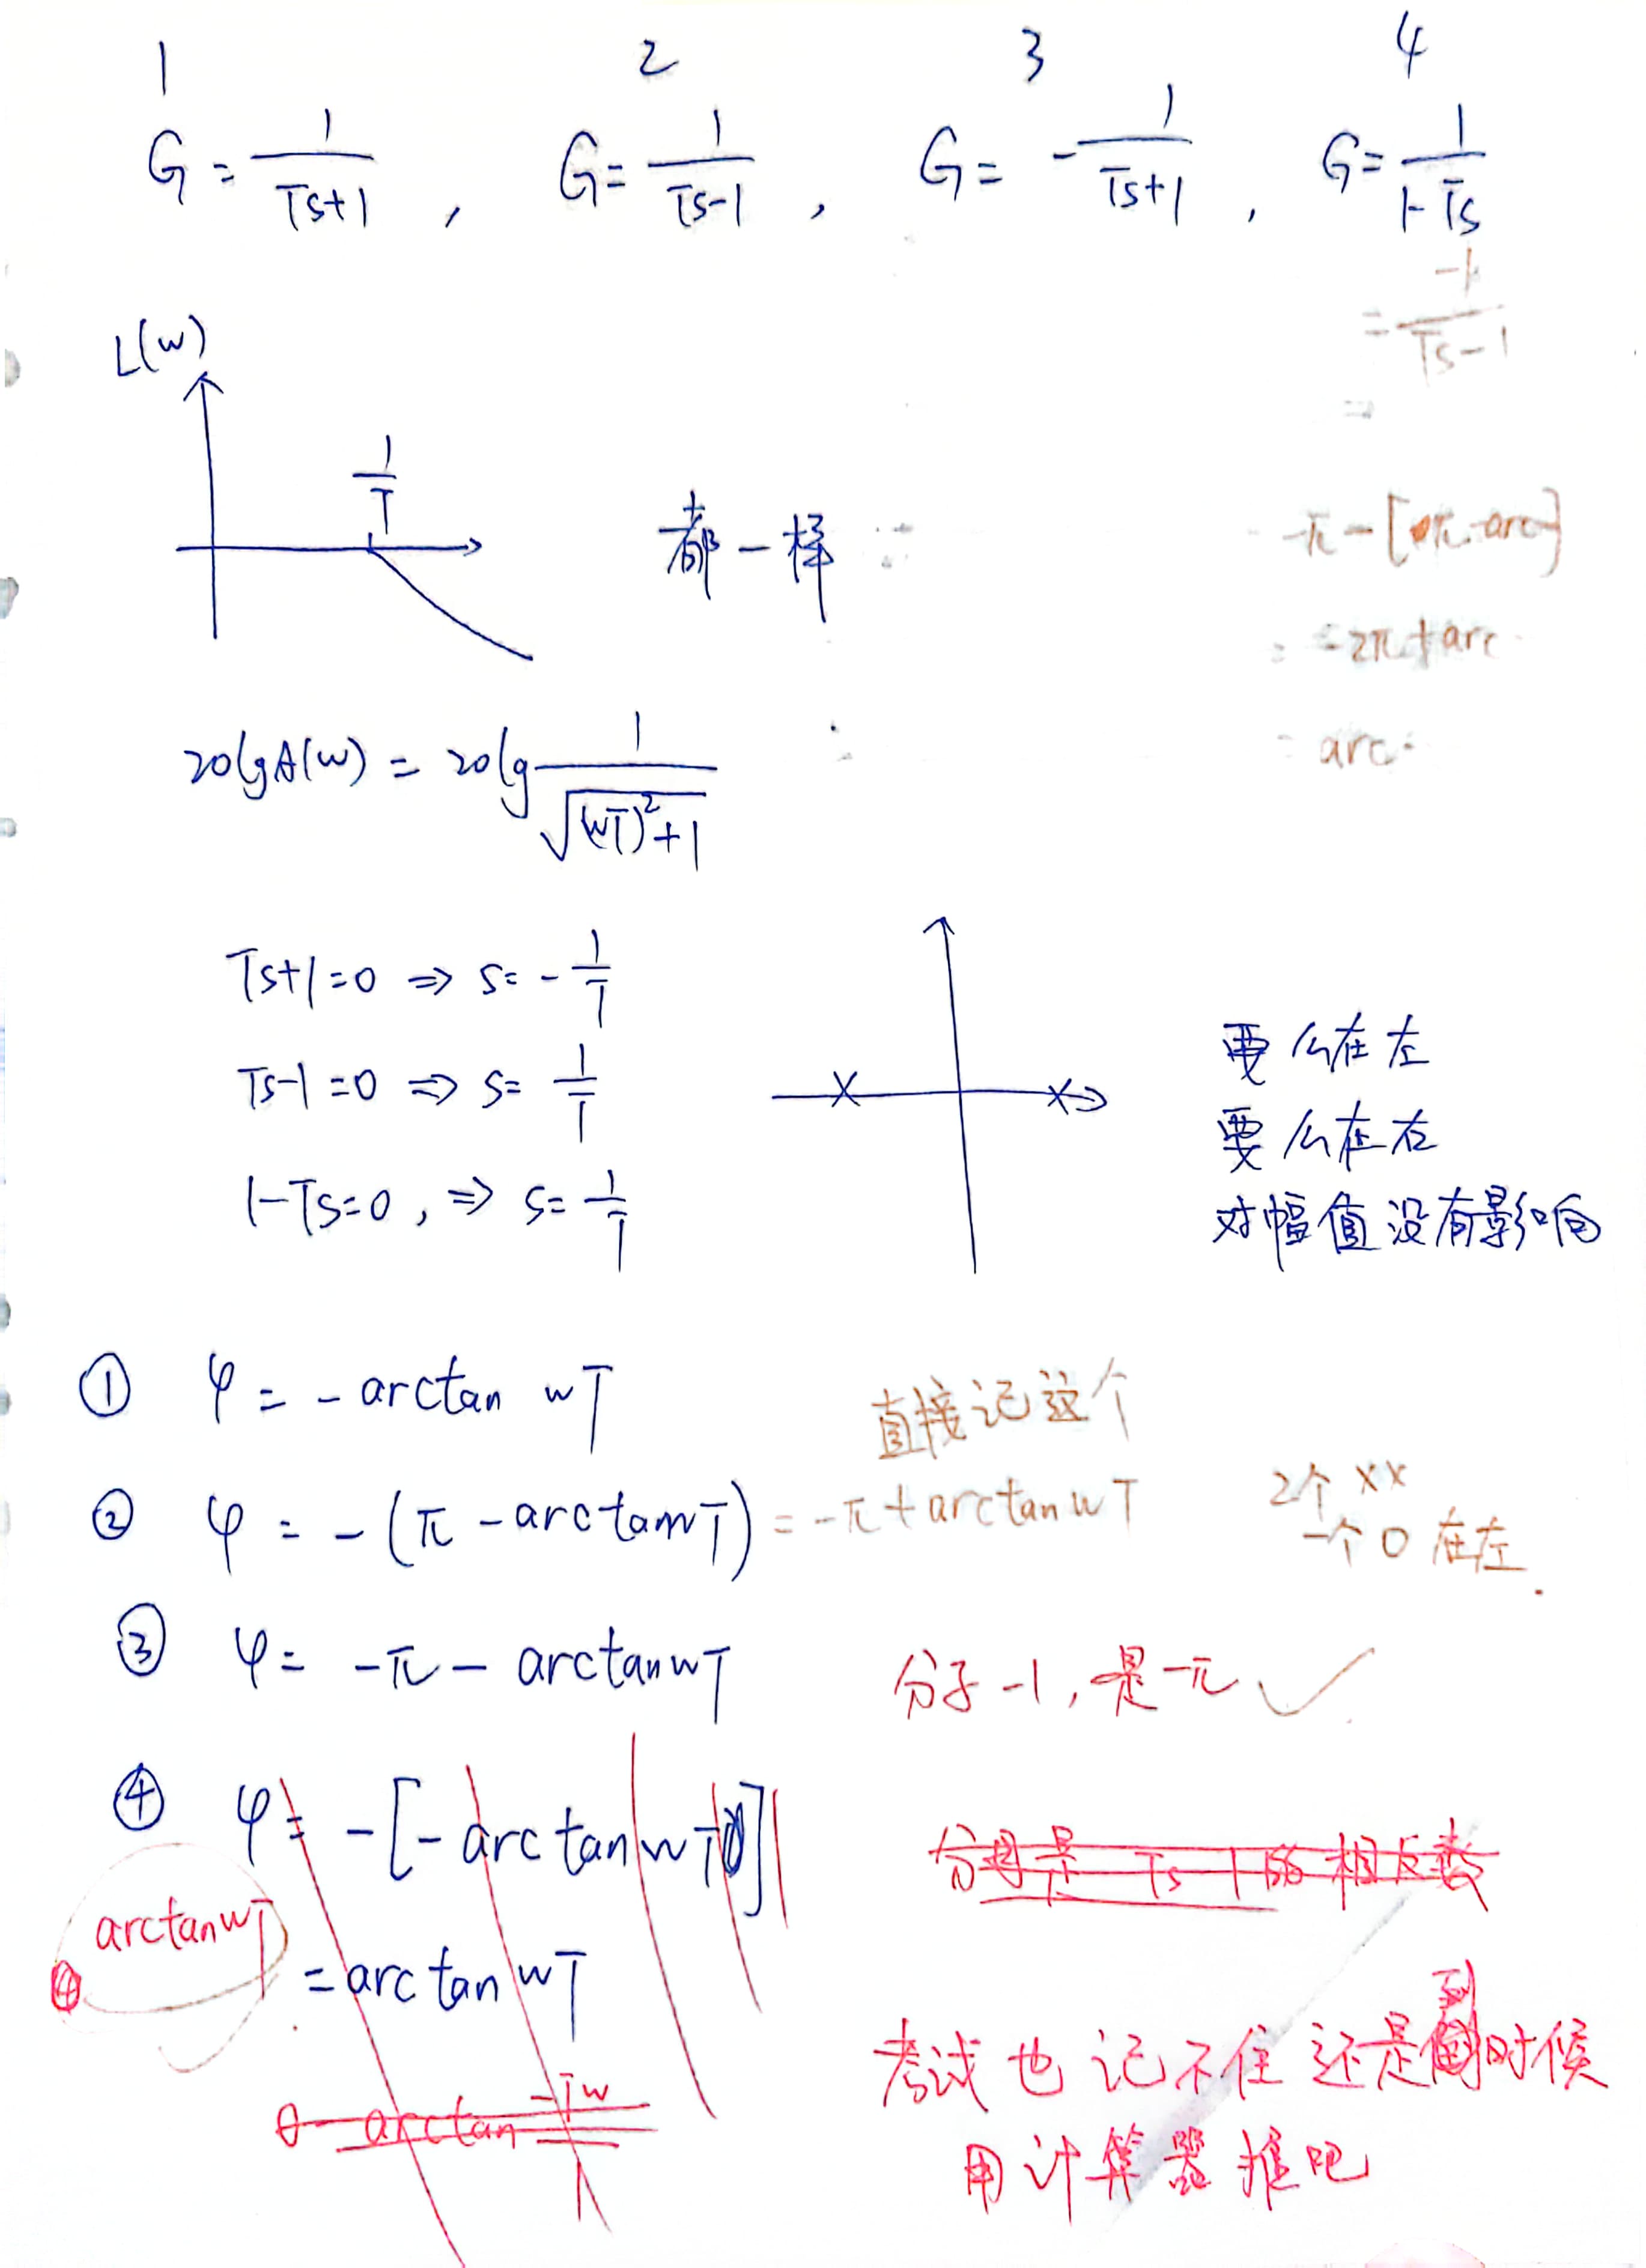 1 2 3 4
G = 1/(Ts+1) , G = 1/(Ts-1) , G = -1/(Ts+1) , G = 1/(1-Ts)
= -1/(Ts-1)
=
L(w)
1/T
都一样
-π-[π-arc]
= -2π+arc
= arc
20lgA(w) = 20lg 1/√((wT)²+1)
Ts+1=0 ⇒ s=-1/T
Ts-1=0 ⇒ s=1/T
1-Ts=0, ⇒ s=1/T
要么在左
要么在右
对幅值没有影响
① φ = -arctan wT
直接记这个
② φ = -(π-arctanwT) = -π+arctanwT
2个 xx
一个 0 在左.
③ φ = -π - arctanwT
分子-1, 是-π ✓
④ φ = -[-arctanwT]
= arctan wT
④ arctanwT ✓
分母是 Ts-1的相反数
0-arctan -Tw/1
考试也记不住还是到时候
用计算器推吧